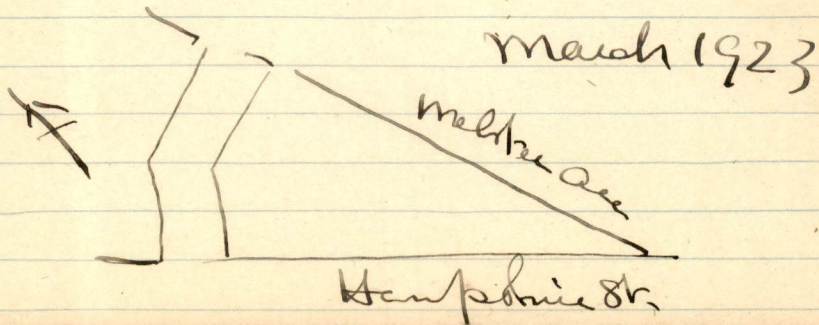 March 1923
Webster Ave
Hampshire St.